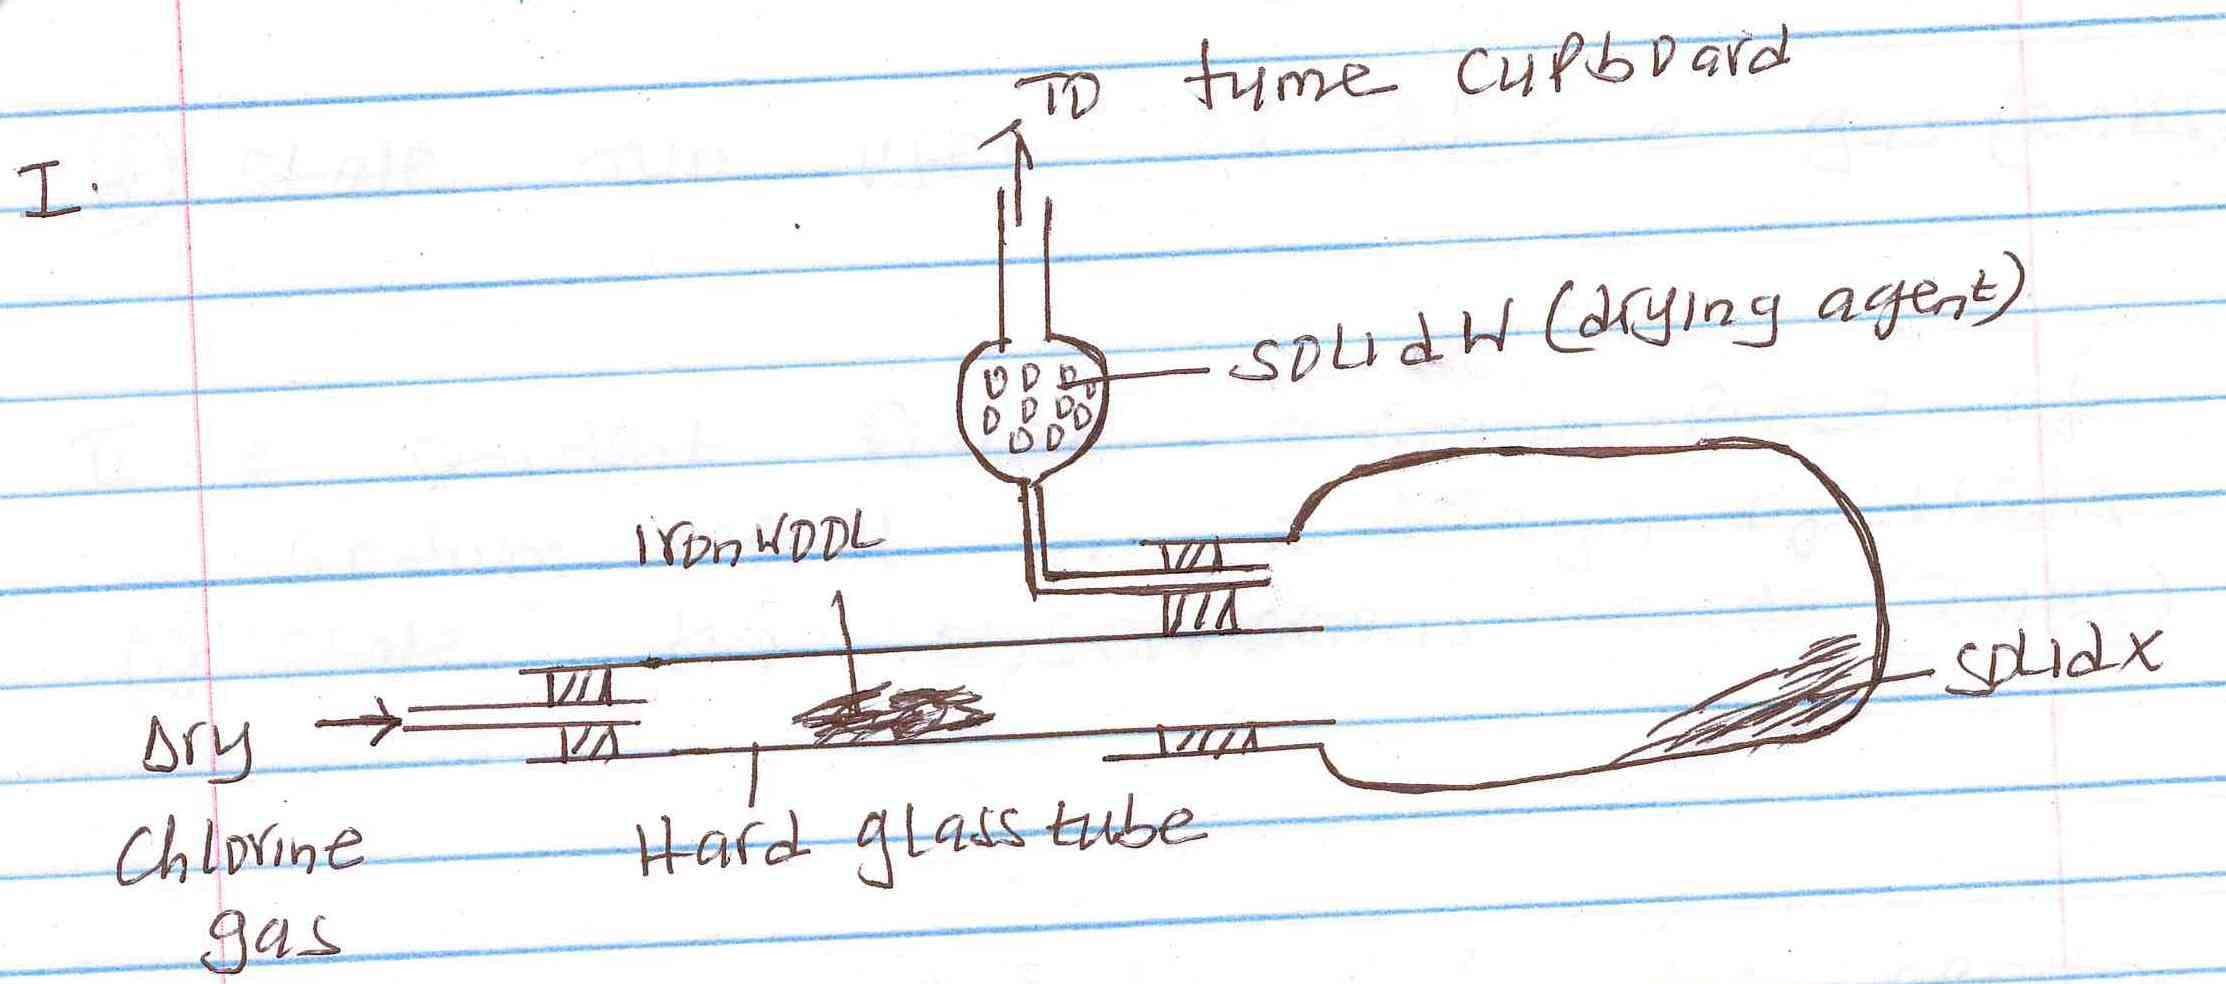 To fume cupboard
I.
solid W (drying agent)
iron wool
solid X
Dry
Chlorine
gas
Hard glass tube